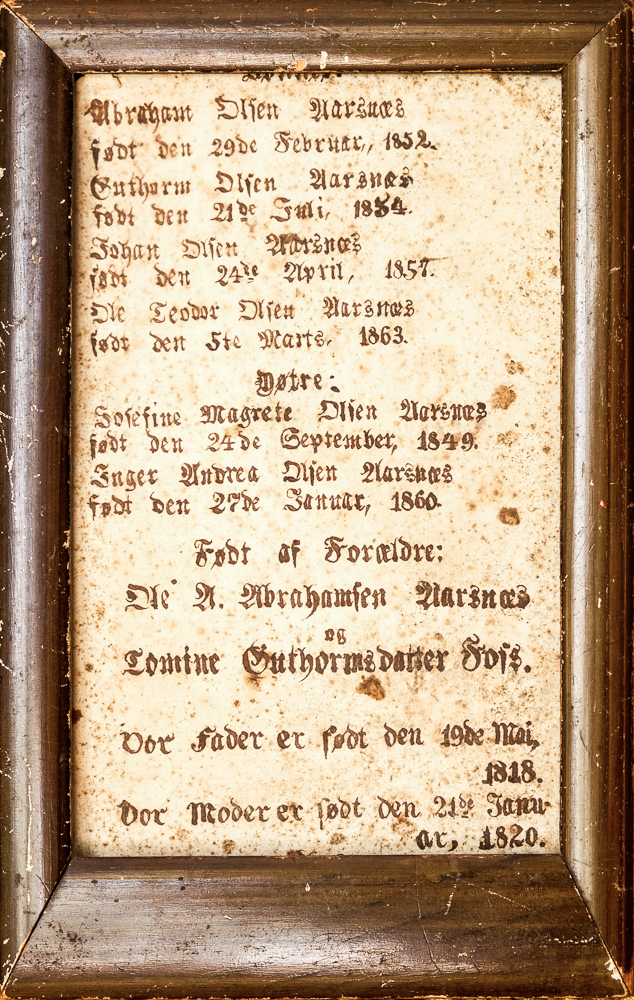 Abraham Olsen Aarsnæs
født den 29de Februar, 1852.
Guthorm Olsen Aarsnæs
født den 21de Juli, 1854.
Johan Olsen Aarsnæs
født den 24de April, 1857.
Ole Teodor Olsen Aarsnæs
født den 5te Marts, 1863.
Døtre:
Josefine Magrete Olsen Aarsnæs
født den 24de September, 1849.
Inger Andrea Olsen Aarsnæs
født den 27de Januar, 1860.
Født af Forældre:
Ole A. Abrahamsen Aarsnæs
og
Tomine Guthormsdatter Foss.
Vor Fader er født den 19de Mai,
1818.
Vor Moder er født den 21de Janu-
ar, 1820.